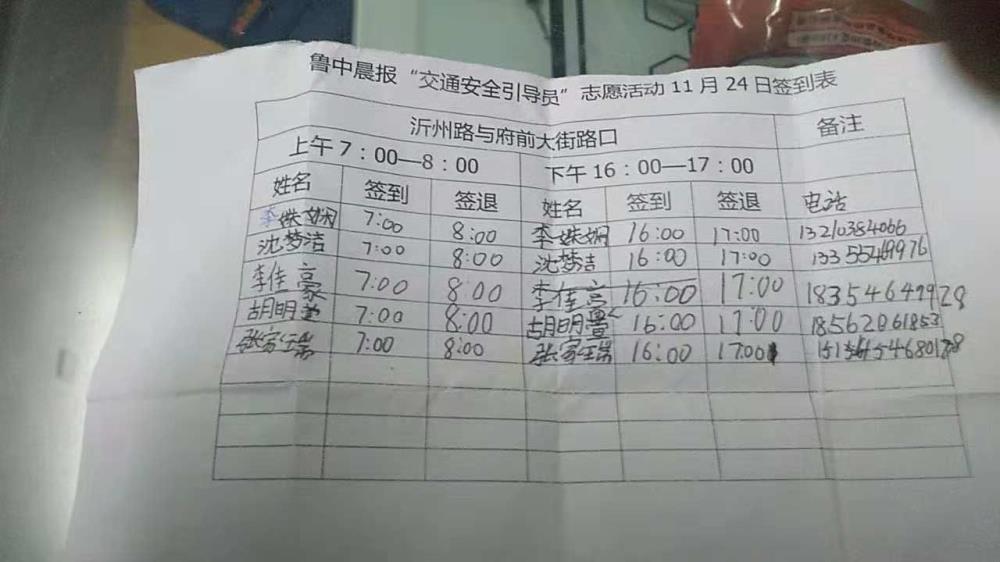 鲁中晨报“交通安全引导员”志愿活动11月24日签到表
沂州路与府前大街路口 备注
上午7：00—8：00 下午16：00—17：00
姓名 签到 签退 姓名 签到 签退 电话
李姝娴 7:00 8:00 李姝娴 16:00 17:00 13210384066
沈梦洁 7:00 8:00 沈梦洁 16:00 17:00
李佳豪 7:00 8:00 李佳 16:00 17:00
胡明萱 7:00 8:00 胡明萱 16:00 17:00 18562061853
张家瑞 7:00 8:00 张家瑞 16:00 17:00